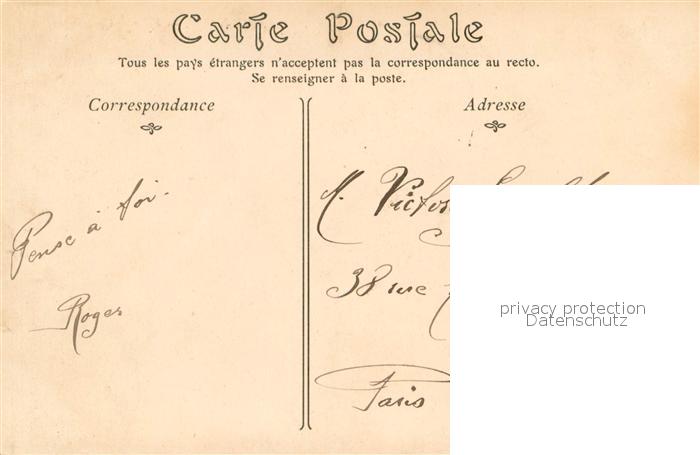 Carte Postale
Tous les pays étrangers n'acceptent pas la correspondance au recto.
Se renseigner à la poste.
Correspondance
Adresse
Pense à toi.
Roger
M. Victor
38 rue
Paris
privacy protection
Datenschutz